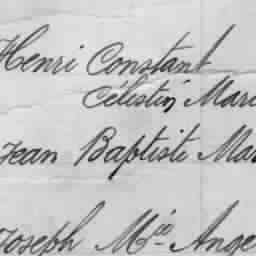 Henri Constant
Célestin Mari
Jean Baptiste Mar
Joseph M.ce Ange